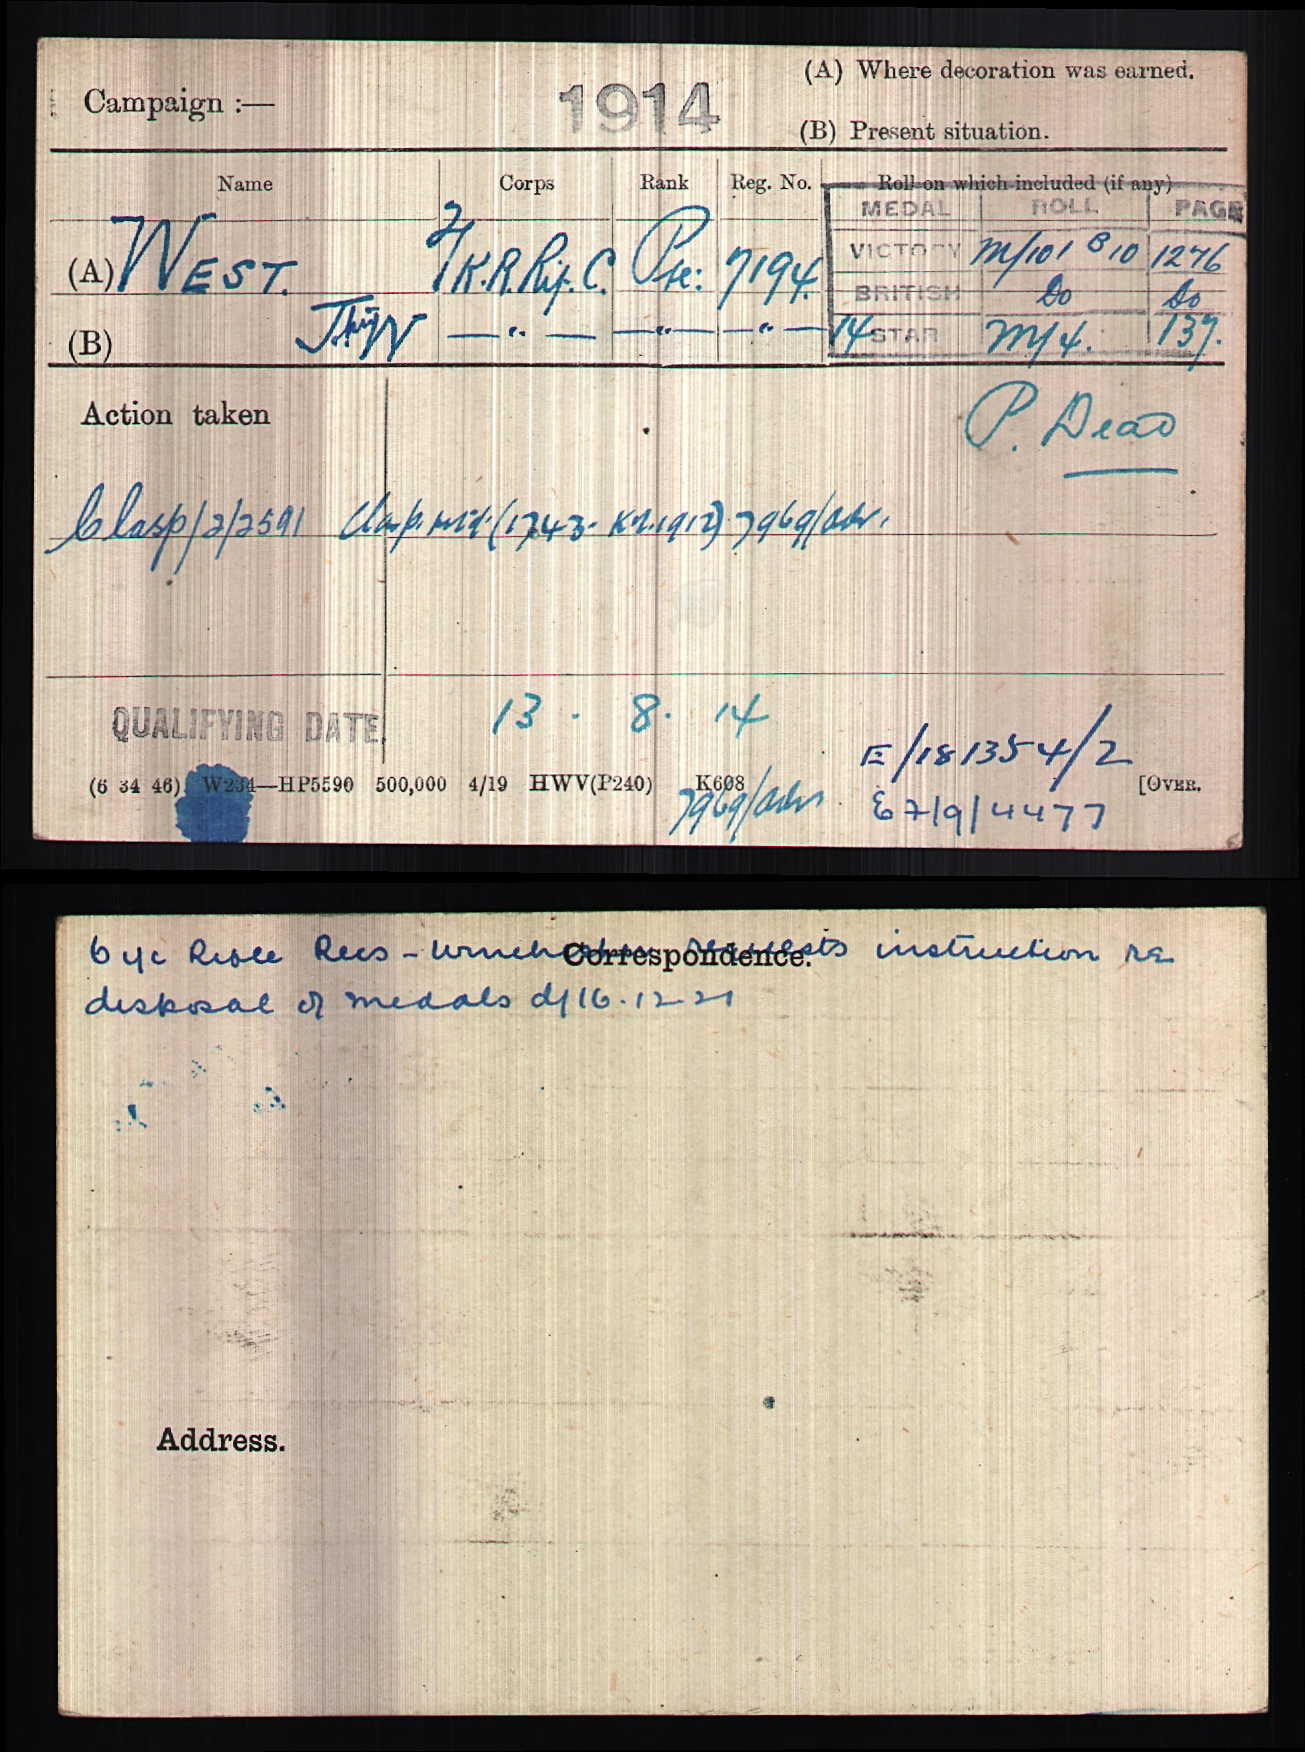 Campaign :— 1914 (A) Where decoration was earned.
(B) Present situation.
Name Corps Rank Reg. No. Roll on which included (if any)
MEDAL ROLL PAGE
(A) WEST. 2/K.R.Rif.C. Pte. 7194. VICTORY M/101 B10 1276
BRITISH Do Do
(B) — " — — " — — " — 14 STAR M/4. 137.
Action taken
P. Dead
Clasp/2/2591 Clasp 7969/Adv.
QUALIFYING DATE 13 . 8 . 14
E/181354/2
(6 34 46) W234—HP5590 500,000 4/19 HWV(P240) K608 [OVER.
7969/Adv
E7/9/4477
Correspondence.
O i/c Rifle Recs - Winchester requests instruction re
disposal of medals d/16.12.21
Address.